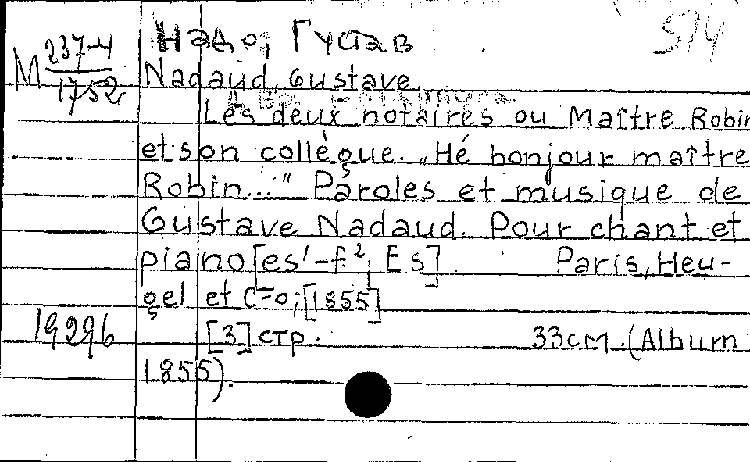 Надо, Густав
574
M 237-4
1752
Nadaud, Gustave
Les deux notaires ou Maître Robin
et son collègue. „Hé bonjour maître
Robin...” Paroles et musique de
Gustave Nadaud. Pour chant et
piano [es¹-f², Es]. Paris, Heu-
gel et C-o; [1855]
19296
[3] стр. 33см. (Album
1855).